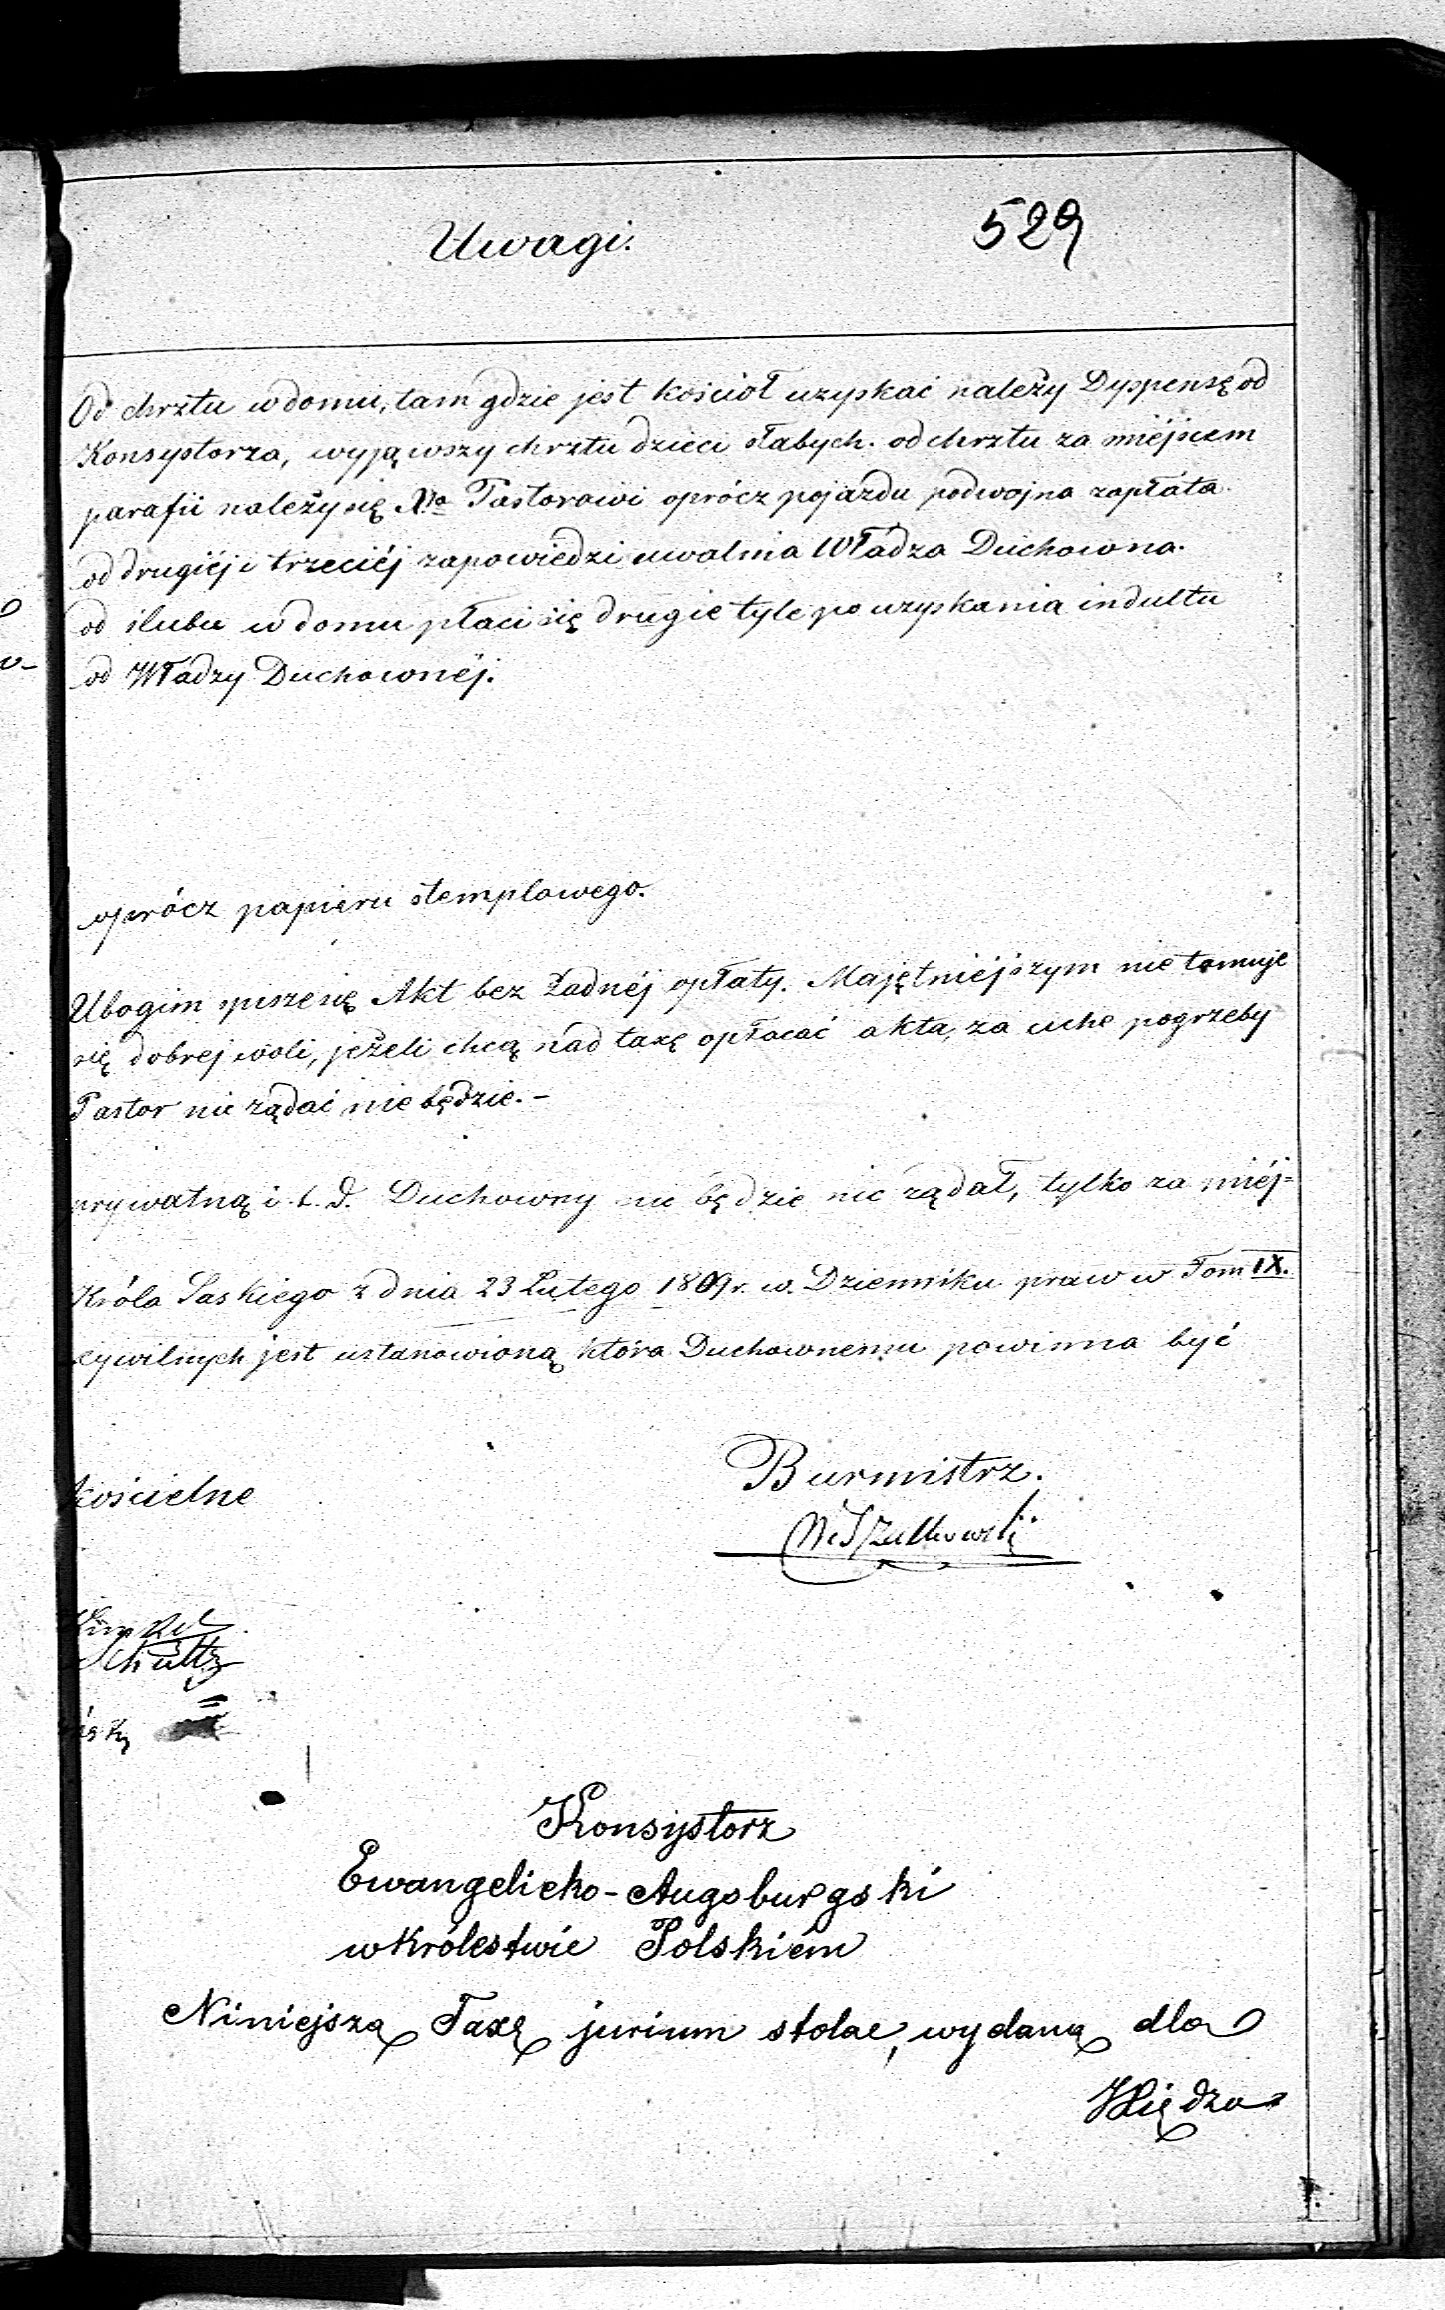 Uwagi.
529
Od chrztu w domu, tam gdzie jest kościoł uzyskać należy Dyspensę od
Konsystorza, wyjąwszy chrztu dzieci słabych. od chrztu za miéjscem
parafii należy się Xdo Pastorowi oprócz pojazdu podwojna zapłata
od drugiéj i trzeciéj zapowiedzi uwalnia Władza Duchowna.
od slubu w domu płaci się drugie tyle po uzyskania indultu
od Władzy Duchownéj.
oprócz papieru stemplowego.
Ubogim pisze się Akt bez żadnéj opłaty. Majętniéjszym nie tamuje
się dobrej woli, jeżeli chcą nad taxę opłacać akta, za ciche pogrzeby
Pastor nic rządać nie będzie. -
prywatną i t. d. Duchowny nie będzie nic rządał, tylko za miéj=
Króla Saskiego z dnia 23 Lutego 1809 r. w. Dzienniku praw w Tom IX.
cywilnych jest ustanowioną która Duchownemu powinna być
kościelne
Burmistrz.
Schultz
Konsystorz
Ewangelicko-Augsburgski
w Królestwie Polskiém
Niniejszą Taxę jurium stolae, wydaną dla
Xiędza